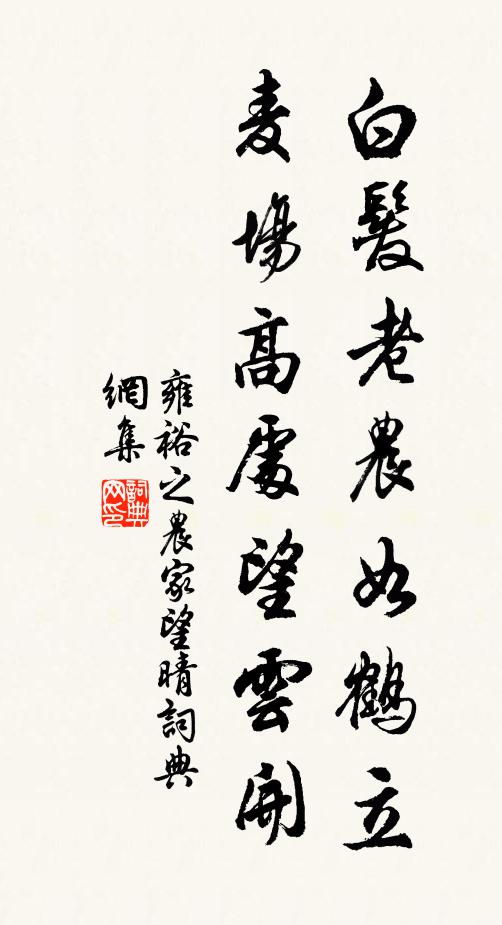 白髮老農如鶴立
麦場高處望雲開
雍裕之農家望晴詞典
網集
詞典網印